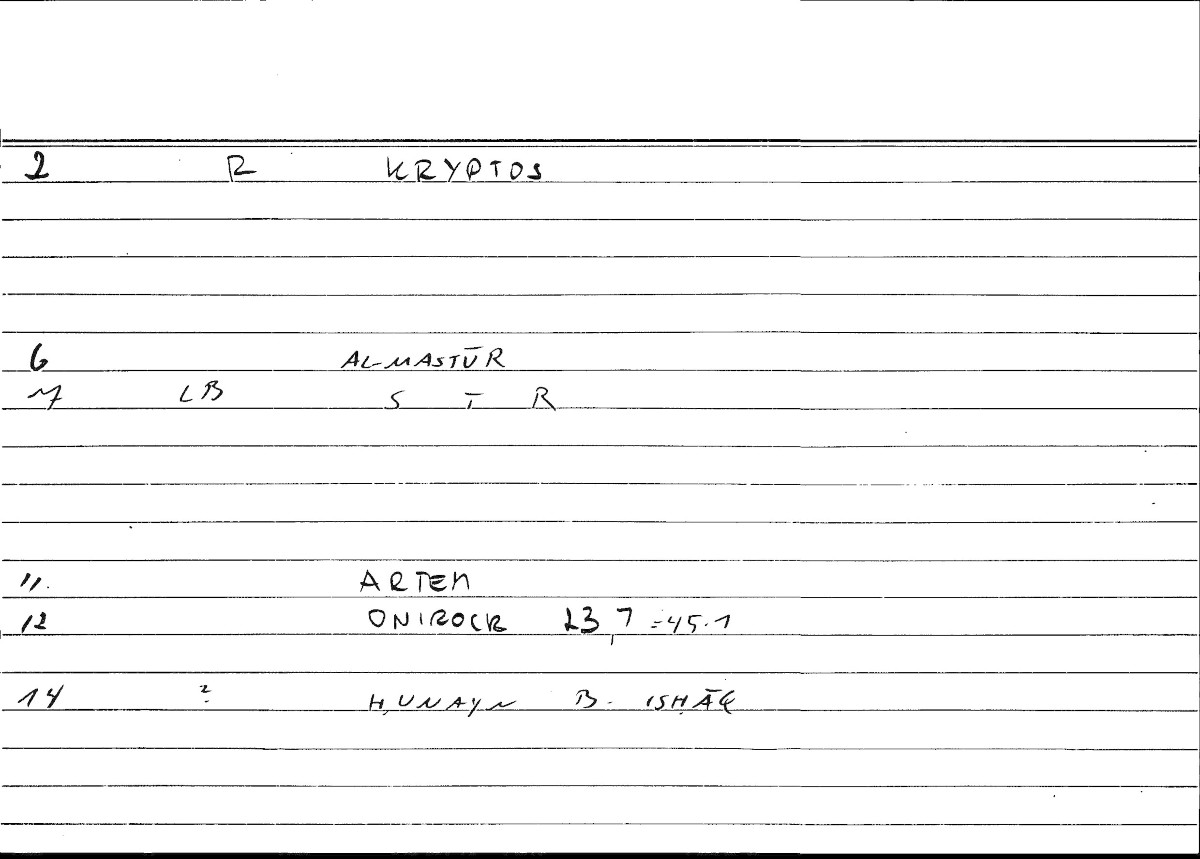 2 R KRYPTOS
6 AL-MASTŪR
LB S T R
11. ARTEM
12 ONIROCR 23,7 =45.1
14 ? ḤUNAYN B. ISḤĀQ